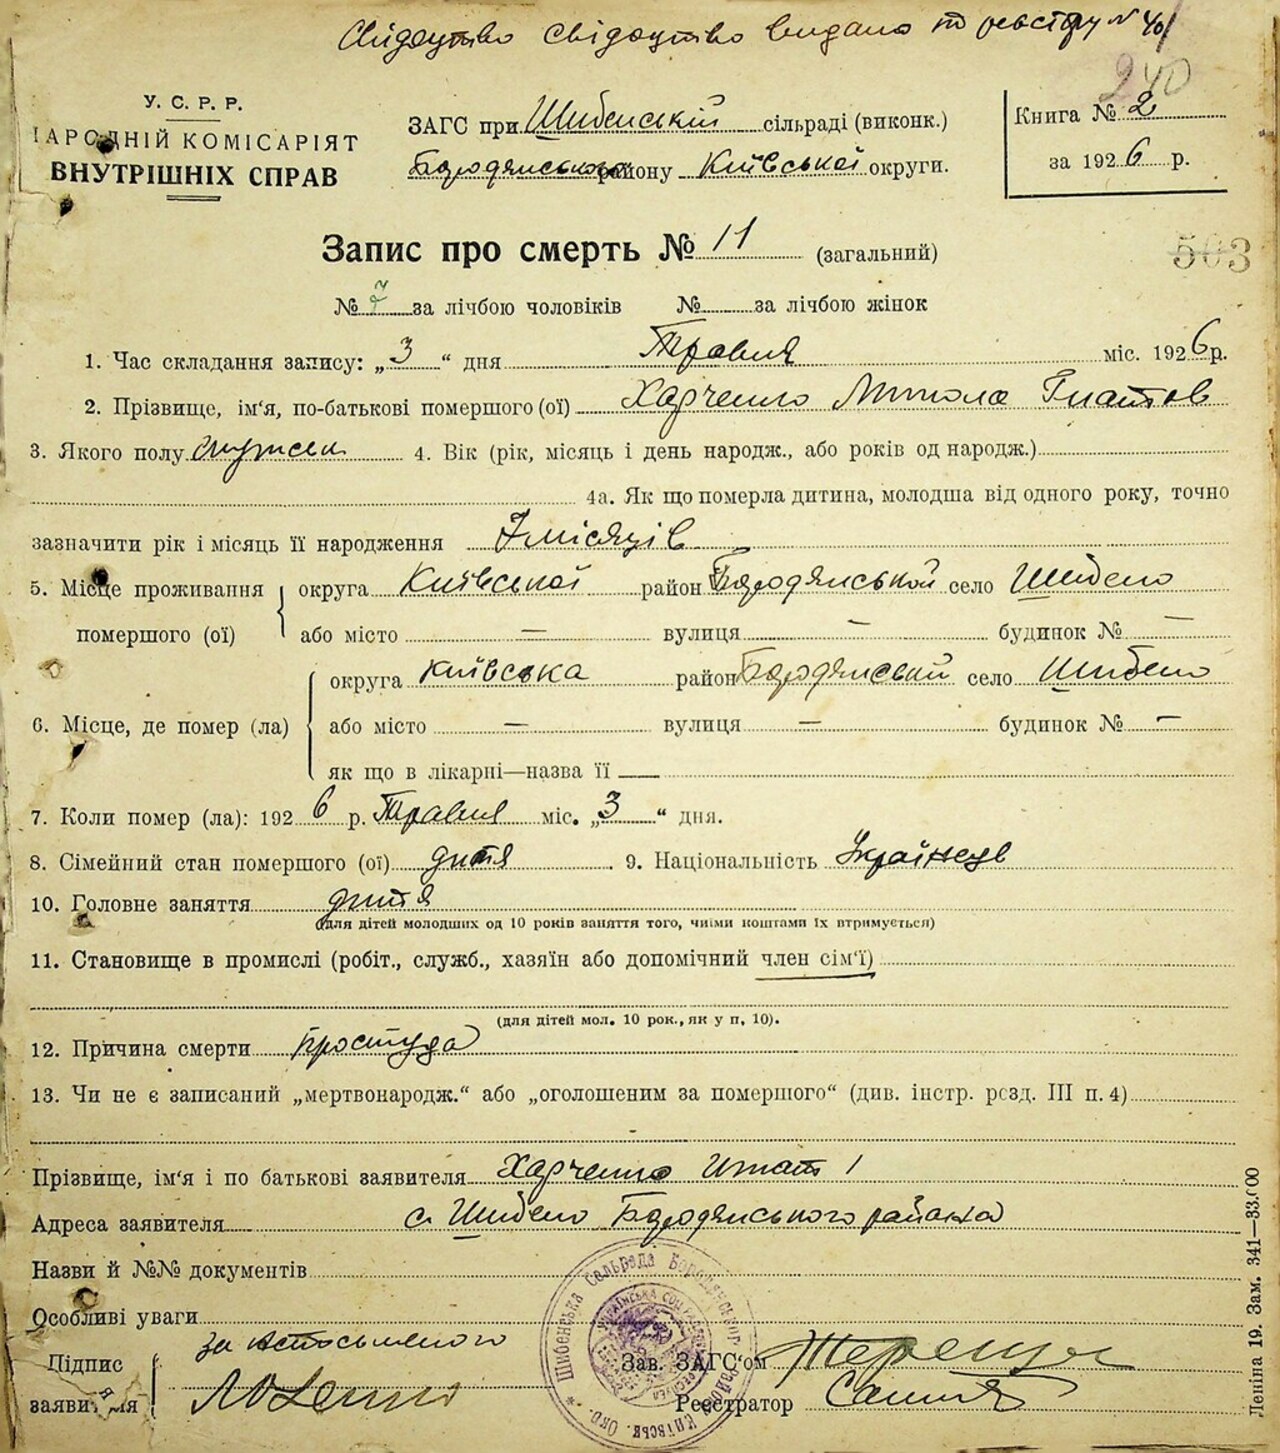 Свідоцтво Свідоцтво видано по реєстру № 40/
240
У. С. Р. Р.
НАРОДНІЙ КОМІСАРІЯТ
ВНУТРІШНІХ СПРАВ
ЗАГС при Шибенській сільраді (виконк.)
Бородянського району Київської округи.
Книга № 2
за 1926 р.
Запис про смерть № 11 (загальний)
503
№ 7 за лічбою чоловіків № за лічбою жінок
1. Час складання запису: „3“ дня Травня міс. 1926 р.
2. Прізвище, ім‘я, по-батькові помершого (ої) Харченко Микола Гнатов
3. Якого полу мужськ 4. Вік (рік, місяць і день народж., або років од народж.)
4а. Як що померла дитина, молодша від одного року, точно
зазначити рік і місяць її народження 7 місяців
5. Місце проживання помершого (ої) округа Київської район Бородянської село Шибено
або місто — вулиця — будинок № —
6. Місце, де помер (ла) округа Київська район Бородянський село Шибено
або місто — вулиця — будинок № —
як що в лікарні—назва її —
7. Коли помер (ла): 1926 р. Травня міс. „3“ дня.
8. Сімейний стан помершого (ої) дитя 9. Національність Українець
10. Головне заняття дитя
(для дітей молодших од 10 років заняття того, чиїми коштами їх втримується)
11. Становище в промислі (робіт., служб., хазяїн або допомічний член сім‘ї)
(для дітей мол. 10 рок., як у п, 10).
12. Причина смерти простуда
13. Чи не є записаний „мертвонародж.“ або „оголошеним за помершого“ (див. інстр. розд. III п. 4)
Прізвище, ім‘я і по батькові заявителя Харченко Игнат І
Адреса заявителя с. Шибено Бородянського района
Назви й №№ документів
Особливі уваги
Підпис заявителя за
Шибенська Сельрада Бородянськог. района Київськ. Окр.
Зав. ЗАГС‘ом
Реєстратор
Леніна 19. Зам. 341—33.000